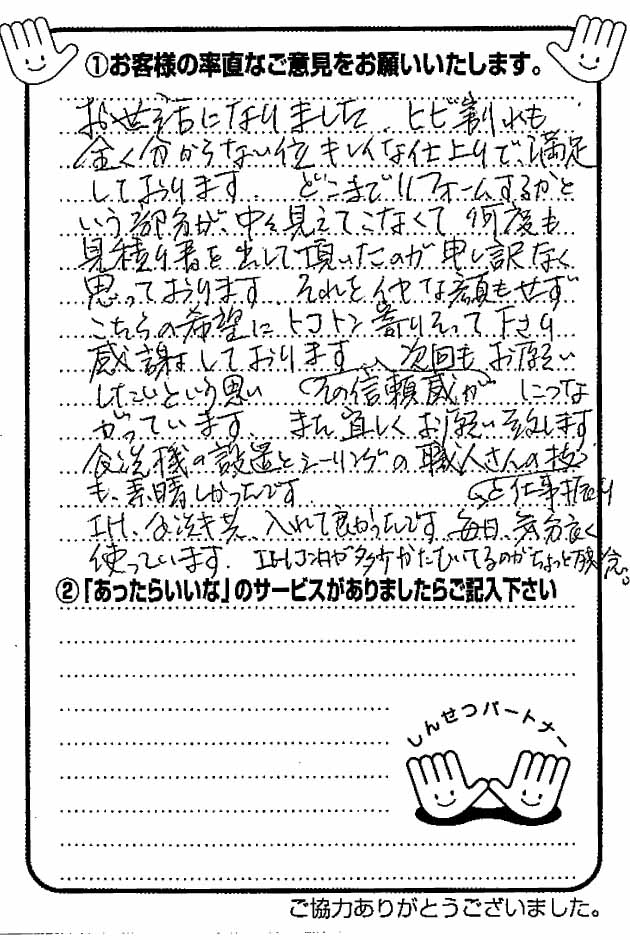 ①お客様の率直なご意見をお願いいたします。
お世話になりました。ヒビ割れも
全く分からない位キレイな仕上りで満足
しております。どこまでリフォームするかと
いう部分が、中々見えてこなくて何度も
見積り書を出して頂いたのが申し訳なく
思っております。それをイヤな顔もせず
こちらの希望にトコトン寄りそって下さり
感謝しております。次回もお願い
したいという思い その信頼感が につな
がっています。また宜しくお願い致します
食洗機の設置とシーリングの職人さんの技
も、素晴しかったです。 と仕事振り
IH、食洗き共、入れて良かったです。毎日、気分良く
使っています。IHコンロが多少かたむいてるのがちょっと残念。
②「あったらいいな」のサービスがありましたらご記入下さい
しんせつパートナー
ご協力ありがとうございました。